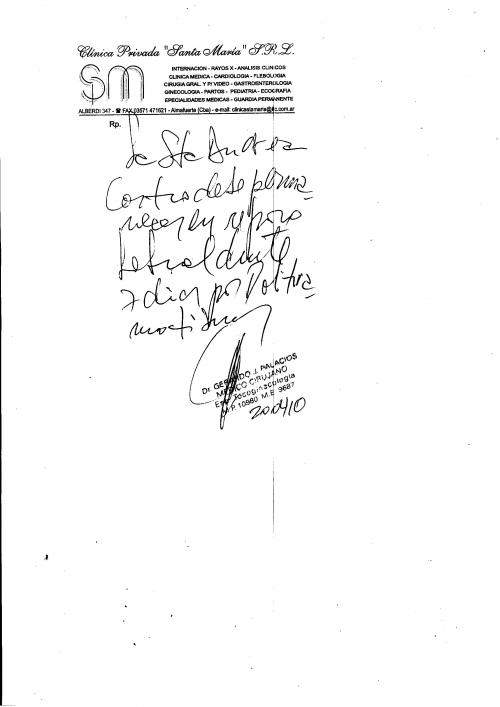 Clínica Privada "Santa María" S.R.L.
sm
INTERNACION - RAYOS X - ANALISIS CLINICOS
CLINICA MEDICA - CARDIOLOGIA - FLEBOLOGIA
CIRUGIA GRAL. Y P/ VIDEO - GASTROENTEROLOGIA
GINECOLOGIA - PARTOS - PEDIATRIA - ECOGRAFIA
EPECIALIDADES MEDICAS - GUARDIA PERMANENTE
ALBERDI 347 - ☎ FAX 03571-471621 - Almafuerte (Cba) - e-mail: clinicastamaria@itc.com.ar
Rp.
La Sta Andrea
debe perma
necer en reposo
durante
7 dias por
Dr. GERARDO J. PALACIOS
MEDICO CIRUJANO
Esp. Tocoginecologia
M.P. 10980 M.E. 9687